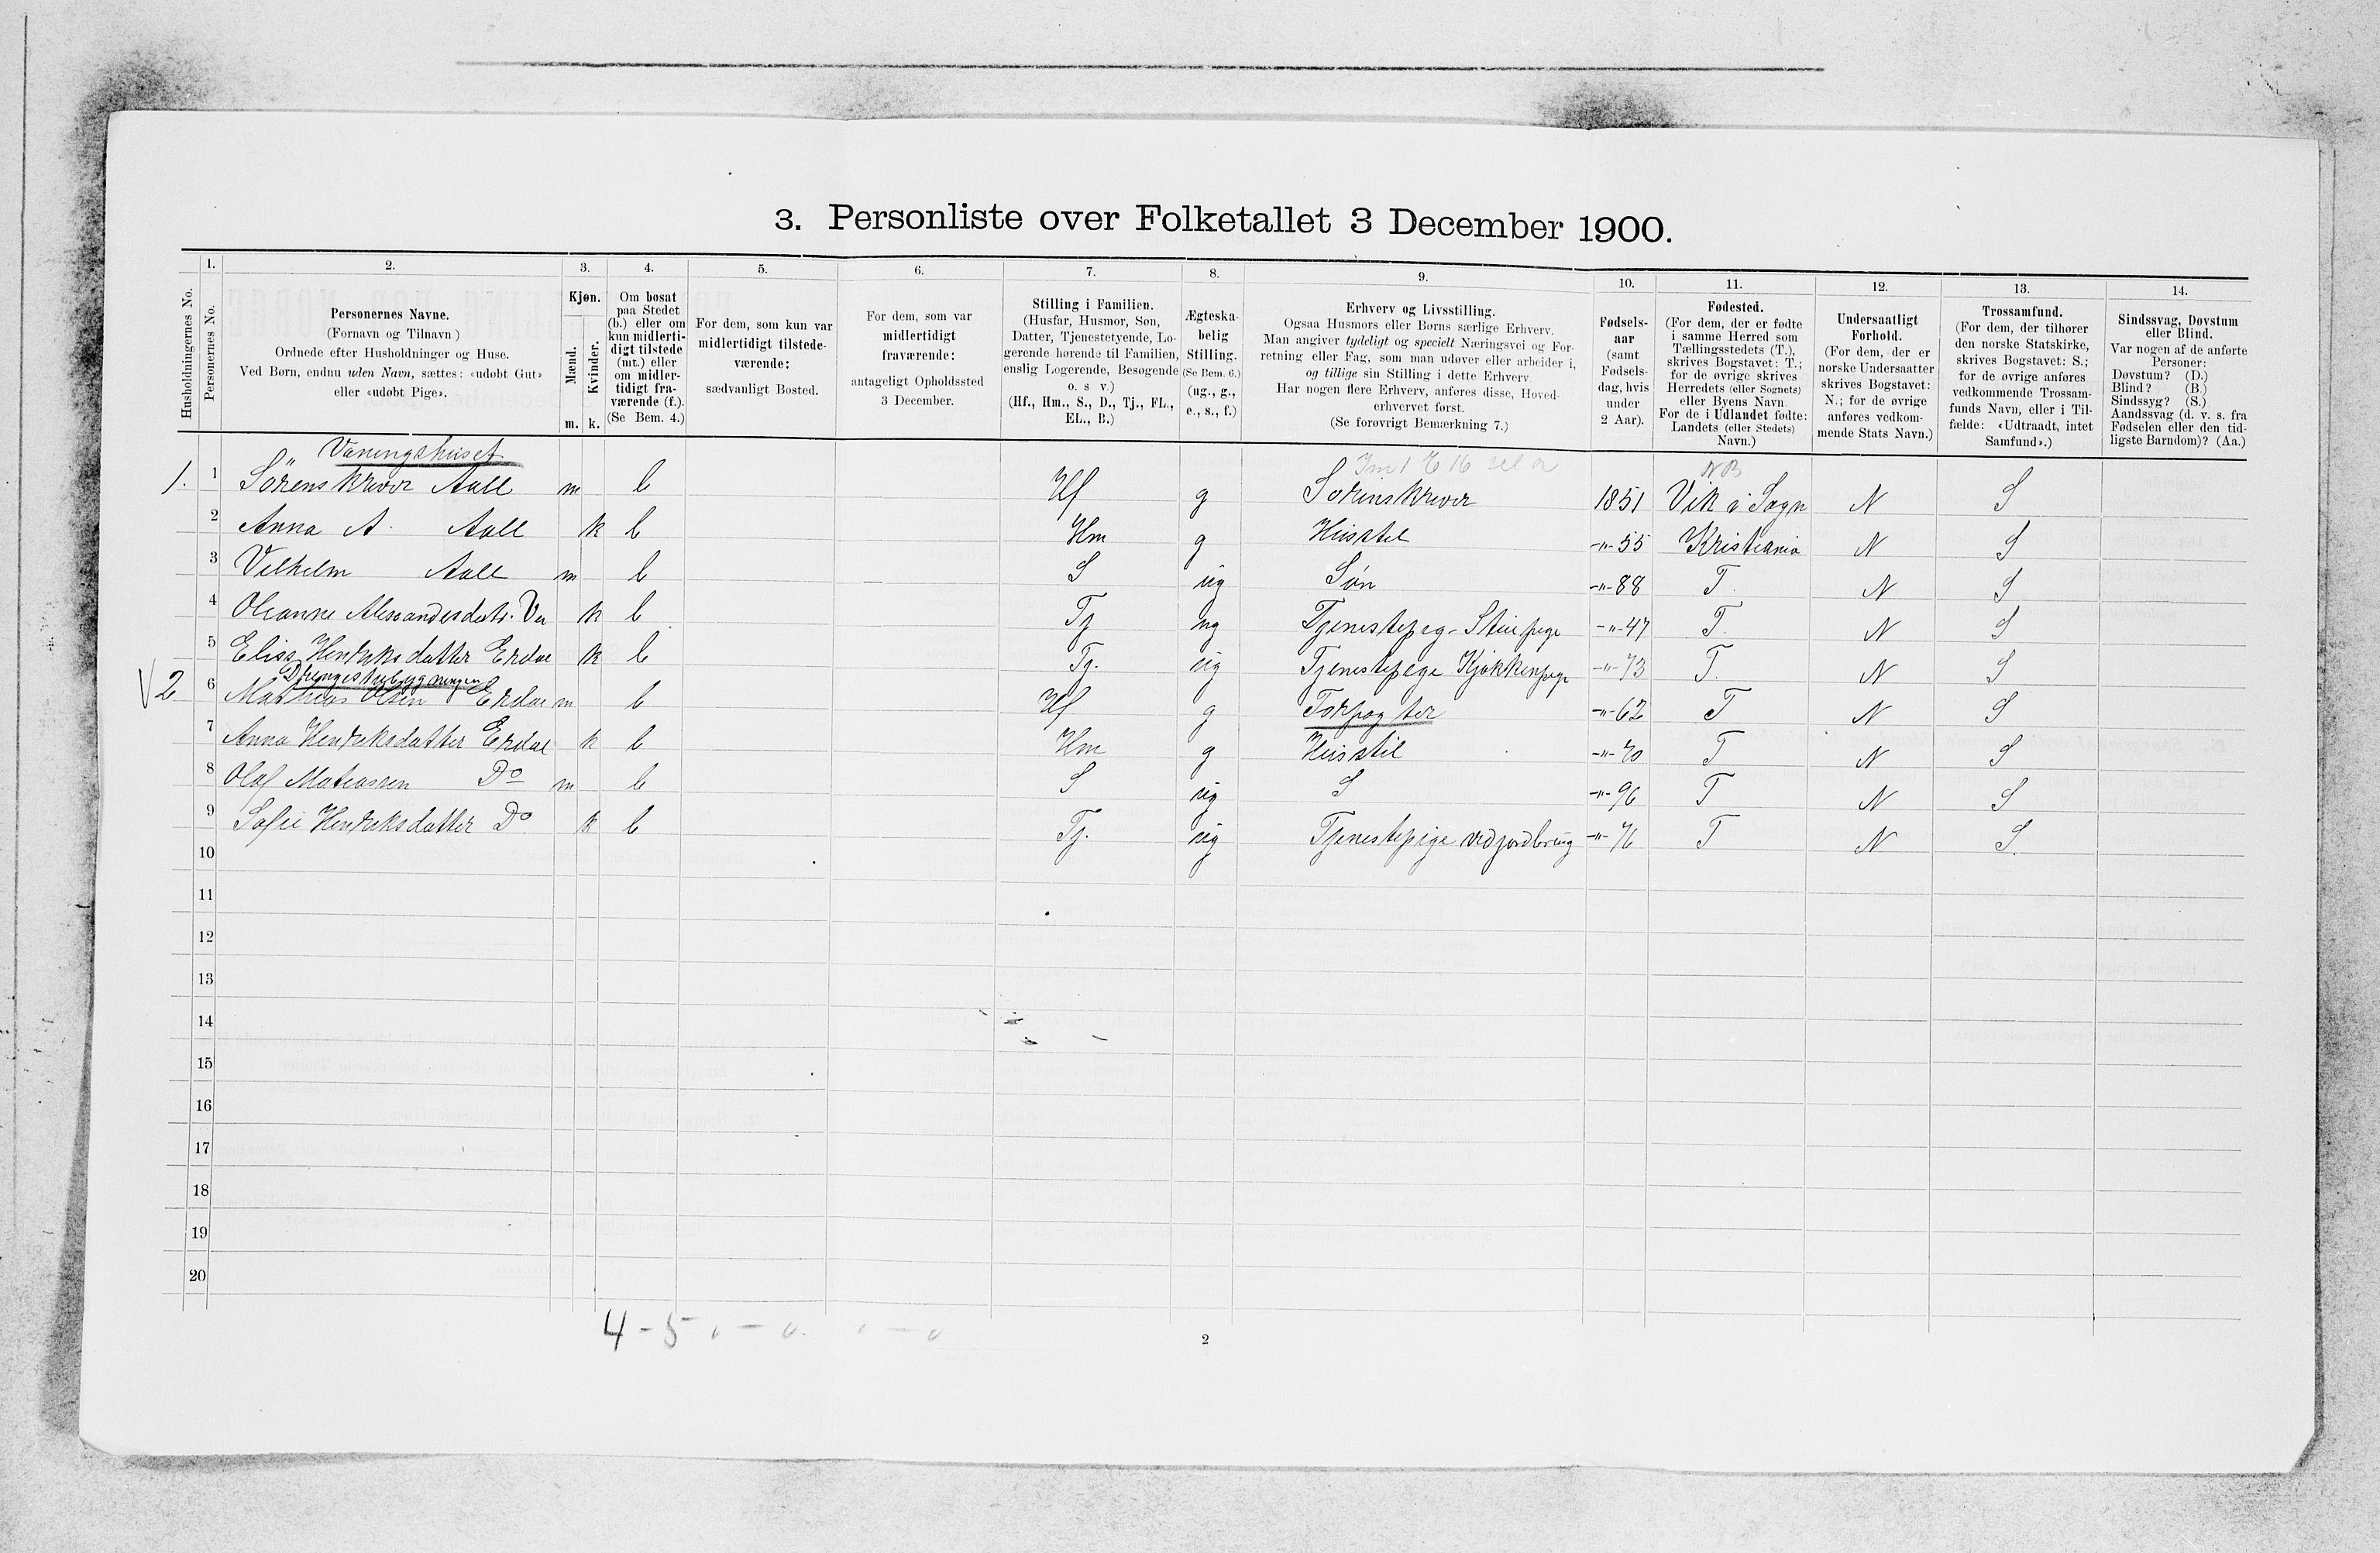 3. Personliste over Folketallet 3 December 1900.
Husholdningernes No.
1. Personernes No.
2.
Personernes Navne.
(Fornavn og Tilnavn)
Ordnede efter Husholdninger og Huse.
Ved Børn, endnu uden Navn, sættes: «udøbt Gut»
eller «udøbt Pige».
3.
Kjøn.
Mænd.
Kvinder.
m. k.
4.
Om bosat
paa Stedet
(b.) eller om
kun midlerti-
digt tilstede
(mt.) eller
om midler-
tidigt fra-
værende (f.).
(Se Bem. 4.)
5.
For dem, som kun var
midlertidigt tilstede-
værende:
sædvanligt Bosted.
6.
For dem, som var
midlertidigt
fraværende:
antageligt Opholdssted
3 December.
7.
Stilling i Familien.
(Husfar, Husmor, Søn,
Datter, Tjenestetyende, Lo-
gerende hørende til Familien,
enslig Logerende, Besøgende
o. s v.)
(Hf., Hm., S., D., Tj., FL.,
EL., B.)
8.
Ægteska-
belig
Stilling.
(Se Bem. 6.)
(ug., g.,
e., s., f.)
9.
Erhverv og Livsstilling.
Ogsaa Husmors eller Børns særlige Erhverv.
Man angiver tydeligt og specielt Næringsvei og For-
retning eller Fag, som man udøver eller arbeider i,
og tillige sin Stilling i dette Erhverv
Har nogen flere Erhverv, anføres disse, Hoved-
erhvervet først.
(Se forøvrigt Bemærkning 7.)
10.
Fødsels-
aar
(samt
Fødsels-
dag, hvis
under
2 Aar).
11.
Fødested.
(For dem, der er fødte
i samme Herred som
Tællingsstedets (T.),
skrives Bogstavet: T.;
for de øvrige skrives
Herredets (eller Sognets)
eller Byens Navn
For de i Udlandet fødte:
Landets (eller Stedets)
Navn.)
12.
Undersaatligt
Forhold.
(For dem, der er
norske Undersaatter
skrives Bogstavet:
N.; for de øvrige
anføres vedkom-
mende Stats Navn.)
13.
Trossamfund.
(For dem, der tilhører
den norske Statskirke,
skrives Bogstavet: S.;
for de øvrige anføres
vedkommende Trossam-
funds Navn, eller i Til-
fælde: «Udtraadt, intet
Samfund».)
14.
Sindssvag, Døvstum
eller Blind.
Var nogen af de anførte
Personer:
Døvstum? (D.)
Blind? (B.)
Sindssyg? (S.)
Aandssvag (d. v. s. fra
Fødselen eller den tid-
ligste Barndom)? (Aa.)
Vaningshuset
NB
1. 1 Sörenskriver Aall m b Hf g Sorenskriver 1851 Vik i Sogn N S
2 Anna A. Aall k b Hm g Husstel -"-55 Kristiania N S
3 Vilhelm Aall m b S ug Søn -"-88 T N S
4 Oleanne k b Tj ug Tjenestepeg-Stuepige -"-47 T. N S
5 Elisa Henriksdatter Erdal k b Tj. ug Tjenestepege Kjøkkenpege -"-73 T. N S
Drengestubygningen
2 6 Mathias Olsen Erdal m b Hf g Forpagter -"-62 T N S
7 Anna Henriksdatter Erdal k b Hm g Husstel -"-70 T N S
8 Olaf Mateassen Do m b S ug S -"-96 T N S
9 Sofie Henriksdatter Do k b Tj. ug Tjenestepige ved jordbrug -"-76 T N S.
10
11
12
13
14
15
16
17
18
19
20
4-5
2